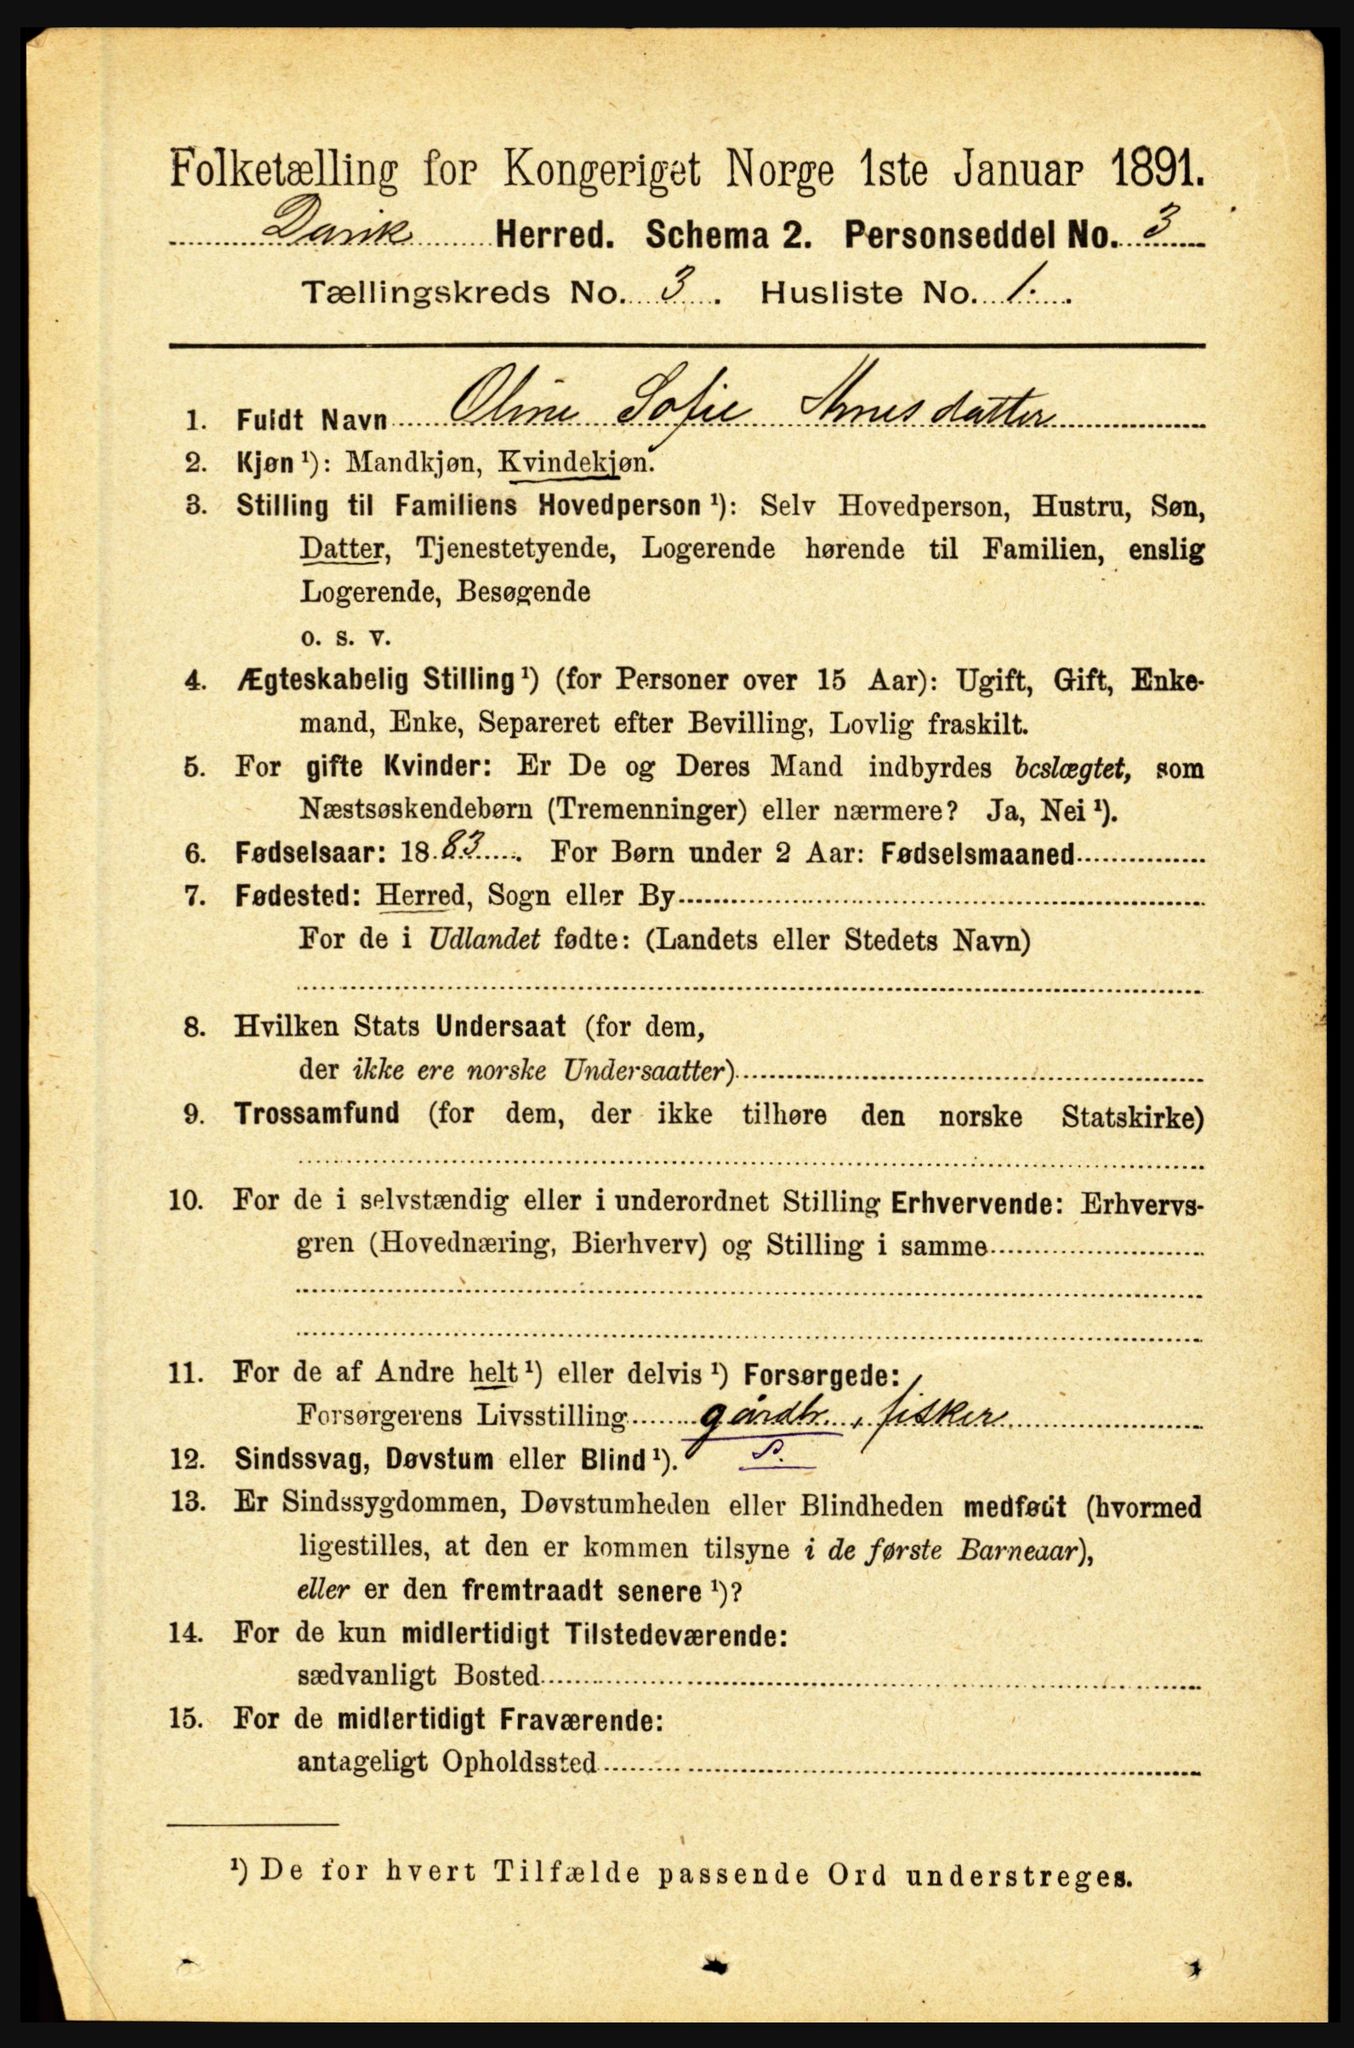 Folketælling for Kongeriget Norge 1ste Januar 1891.
Davik Herred. Schema 2. Personseddel No. 3
Tællingskreds No. 3. Husliste No. 1.
1. Fuldt Navn Oline Sofie Arnesdatter
2. Kjøn ¹): Mandkjøn, Kvindekjøn.
3. Stilling til Familiens Hovedperson ¹): Selv Hovedperson, Hustru, Søn,
Datter, Tjenestetyende, Logerende hørende til Familien, enslig
Logerende, Besøgende
o. s. v.
4. Ægteskabelig Stilling ¹) (for Personer over 15 Aar): Ugift, Gift, Enke-
mand, Enke, Separeret efter Bevilling, Lovlig fraskilt.
5. For gifte Kvinder: Er De og Deres Mand indbyrdes beslægtet, som
Næstsøskendebørn (Tremenninger) eller nærmere? Ja, Nei ¹).
6. Fødselsaar: 1883. For Børn under 2 Aar: Fødselsmaaned
7. Fødested: Herred, Sogn eller By
For de i Udlandet fødte: (Landets eller Stedets Navn)
8. Hvilken Stats Undersaat (for dem,
der ikke ere norske Undersaatter)
9. Trossamfund (for dem, der ikke tilhøre den norske Statskirke)
10. For de i selvstændig eller i underordnet Stilling Erhvervende: Erhvervs-
gren (Hovednæring, Bierhverv) og Stilling i samme
11. For de af Andre helt ¹) eller delvis ¹) Forsørgede:
Forsørgerens Livsstilling gårdbr., fisker
12. Sindssvag, Døvstum eller Blind ¹). S.
13. Er Sindssygdommen, Døvstumheden eller Blindheden medfødt (hvormed
ligestilles, at den er kommen tilsyne i de første Barneaar),
eller er den fremtraadt senere ¹)?
14. For de kun midlertidigt Tilstedeværende:
sædvanligt Bosted
15. For de midlertidigt Fraværende:
antageligt Opholdssted
¹) De for hvert Tilfælde passende Ord understreges.